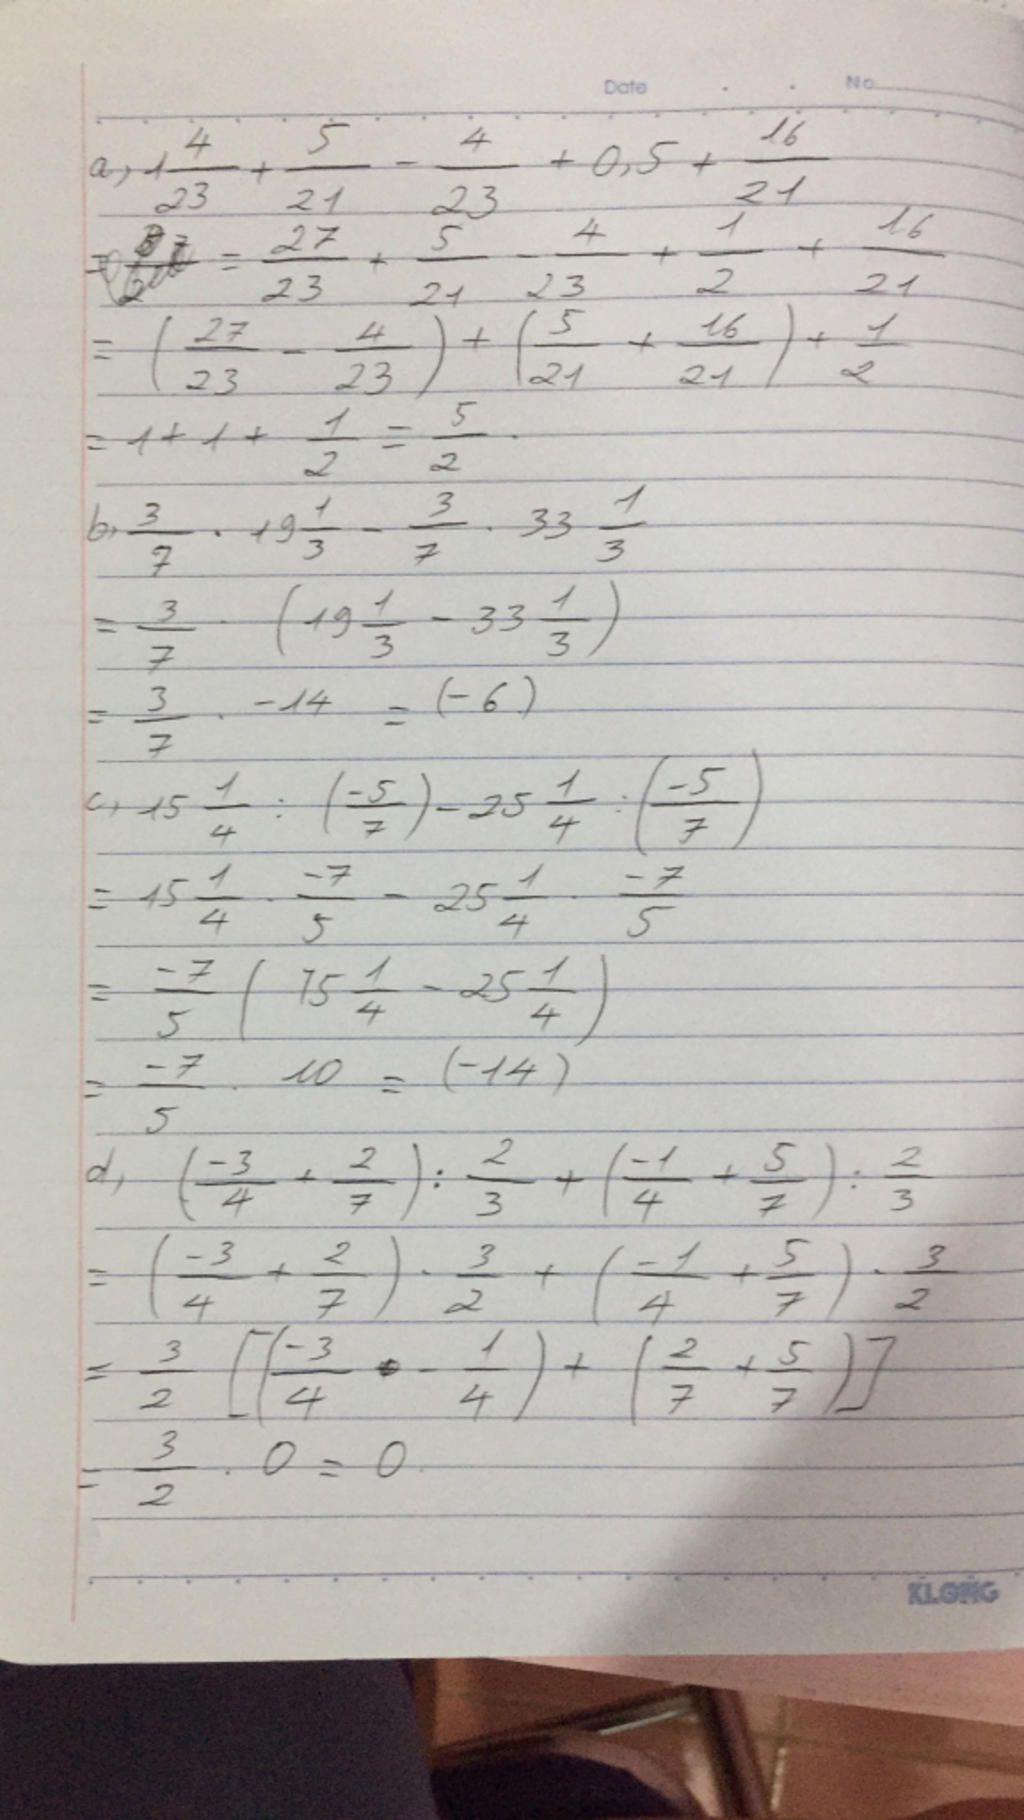 Date . . No
a, 1 4/23 + 5/21 - 4/23 + 0,5 + 16/21
= = 27/23 + 5/21 - 4/23 + 1/2 + 16/21
= (27/23 - 4/23) + (5/21 + 16/21) + 1/2
= 1 + 1 + 1/2 = 5/2.
b, 3/7 . 19 1/3 - 3/7 . 33 1/3
= 3/7 . (19 1/3 - 33 1/3)
= 3/7 . -14 = (-6)
c, 15 1/4 : (-5/7) - 25 1/4 : (-5/7)
= 15 1/4 . -7/5 - 25 1/4 . -7/5
= -7/5 (15 1/4 - 25 1/4)
= -7/5 . 10 = (-14)
d, (-3/4 + 2/7) : 2/3 + (-1/4 + 5/7) : 2/3
= (-3/4 + 2/7) . 3/2 + (-1/4 + 5/7) . 3/2
= 3/2 [(-3/4 - 1/4) + (2/7 + 5/7)]
= 3/2 . 0 = 0.
KLONG